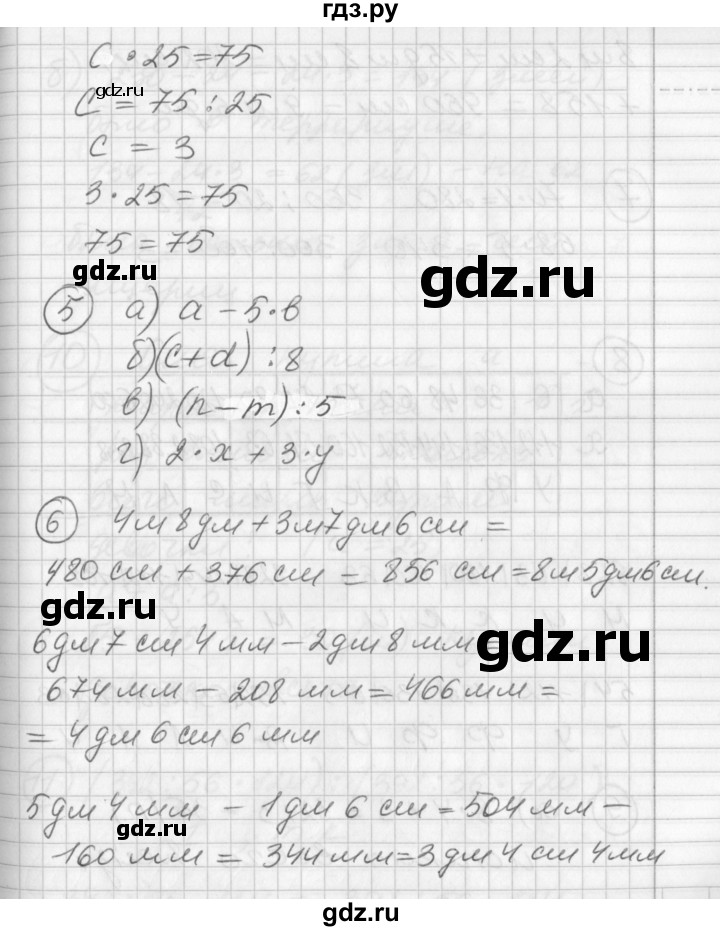 гдз.ру
c · 25 = 75
gdz.ru
c = 75 : 25
c = 3
3 · 25 = 75
75 = 75
gdz.ru
gdz.ru
5 а) a - 5 · b
б) (c + d) : 8
в) (n - m) : 5
г) 2 · x + 3 · y
6 4м 8дм + 3м 7дм 6см =
480 см + 376 см = 856 см = 8м 5дм 6см.
gdz.ru
6дм 7см 4мм - 2дм 8мм =
gdz.ru
674 мм - 208 мм = 466 мм =
= 4дм 6см 6мм
5дм 4мм - 1дм 6см = 504мм -
gdz.ru
160 мм = 344мм = 3дм 4см 4мм
gdz.ru